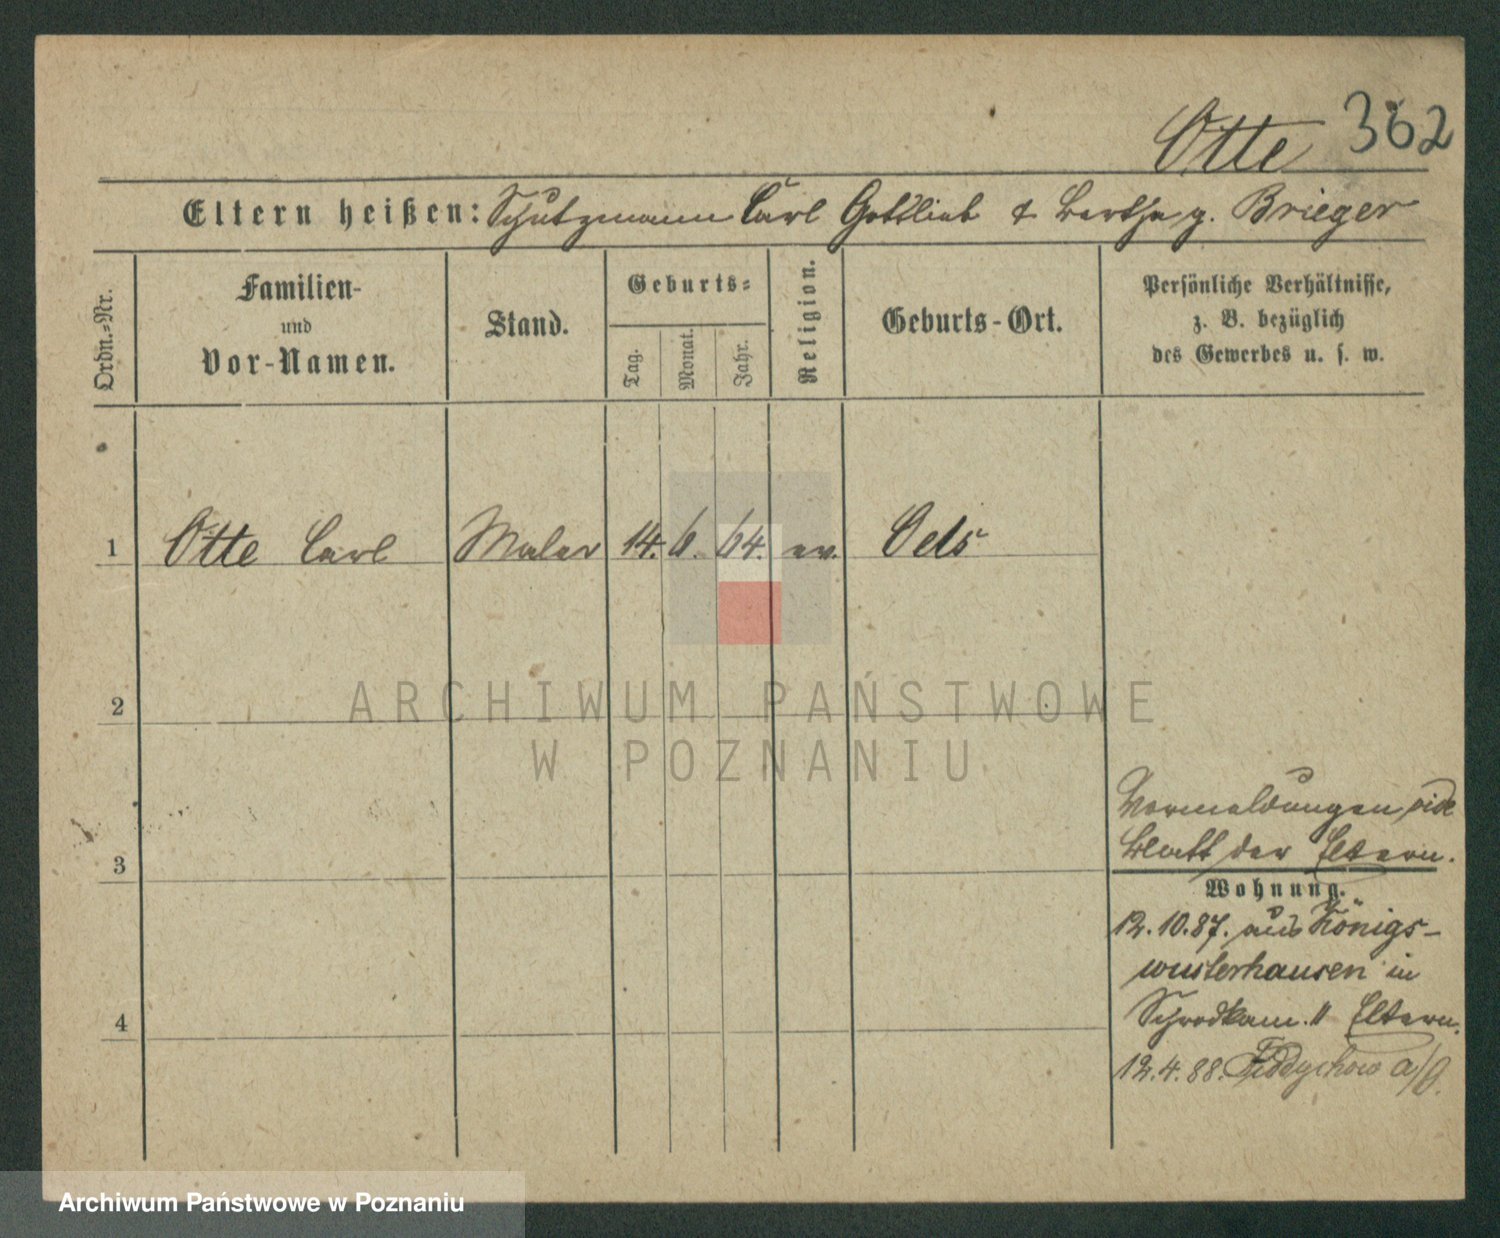 Otte 362
Eltern heißen: Schutzmann Carl Gottlieb & Bertha g. Brieger
Ordn.-Nr.
Familien-
und
Vor-Namen.
Stand.
Geburts-
Tag.
Monat.
Jahr.
Religion.
Geburts-Ort.
Persönliche Verhältnisse,
z. B. bezüglich
des Gewerbes u. s. w.
1 Otte Carl Maler 14. 6. 64. ev. Oels
2
ARCHIWUM PAŃSTWOWE
W POZNANIU
Vormeldungen vide
3 Blatt der Eltern.
Wohnung.
12.10.87. aus Königs-
wusterhausen in
4 Eltern.
12.4.88. a/O.
Archiwum Państwowe w Poznaniu